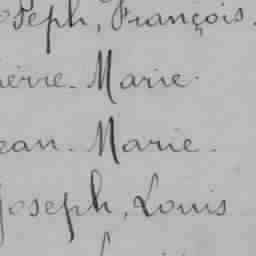 oseph, François.
ierre. Marie.
ean. Marie.
Joseph, Louis